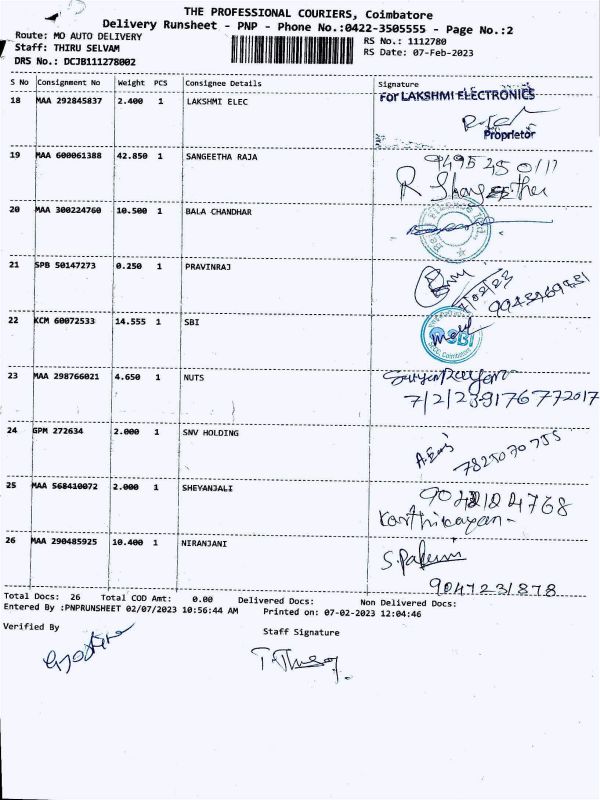 THE PROFESSIONAL COURIERS, Coimbatore
Delivery Runsheet - PNP - Phone No.:0422-3505555 - Page No.:2
Route: MO AUTO DELIVERY
Staff: THIRU SELVAM
DRS No.: DCJB111278002
RS No.: 1112780
RS Date: 07-Feb-2023
S No Consignment No Weight PCS Consignee Details Signature
18 MAA 292845837 2.400 1 LAKSHMI ELEC
For LAKSHMI ELECTRONICS
Proprietor
19 MAA 600061388 42.850 1 SANGEETHA RAJA
20 MAA 300224760 10.500 1 BALA CHANDHAR
21 SPB 50147273 0.250 1 PRAVINRAJ
22 KCM 60072533 14.555 1 SBI
SBI
23 MAA 298766021 4.650 1 NUTS
7/2/23 9176772017
24 GPM 272634 2.000 1 SNV HOLDING
25 MAA 568410072 2.000 1 SHEYANJALI
26 MAA 290485925 10.400 1 NIRANJANI
9047231878
Total Docs: 26 Total COD Amt: 0.00 Delivered Docs: Non Delivered Docs:
Entered By :PNPRUNSHEET 02/07/2023 10:56:44 AM Printed on: 07-02-2023 12:04:46
Verified By
Staff Signature